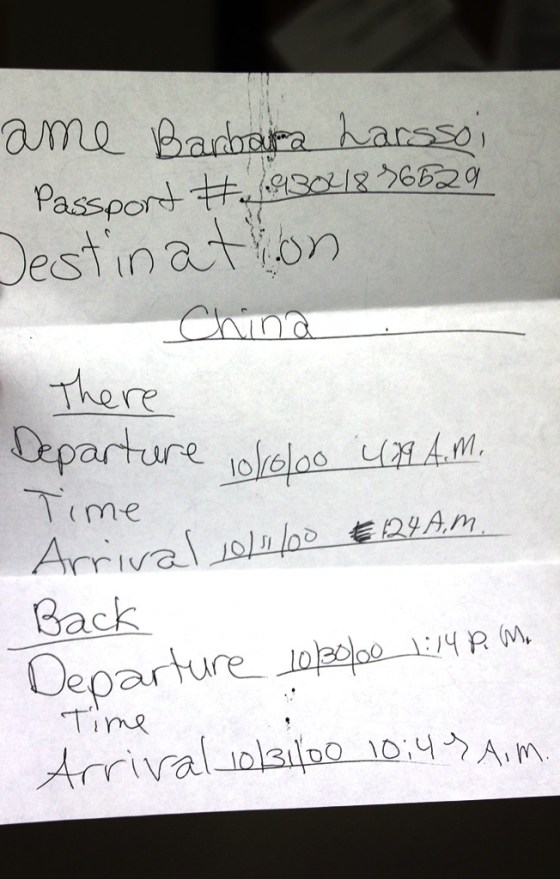 ame Barbara Larsso
Passport # 93041876529
Destination
China
There
Departure 10/10/00 4:29 A.M.
Time
Arrival 10/11/00 1:24 A.M.
Back
Departure 10/30/00 1:14 P.M.
Time
Arrival 10/31/00 10:47 A.M.